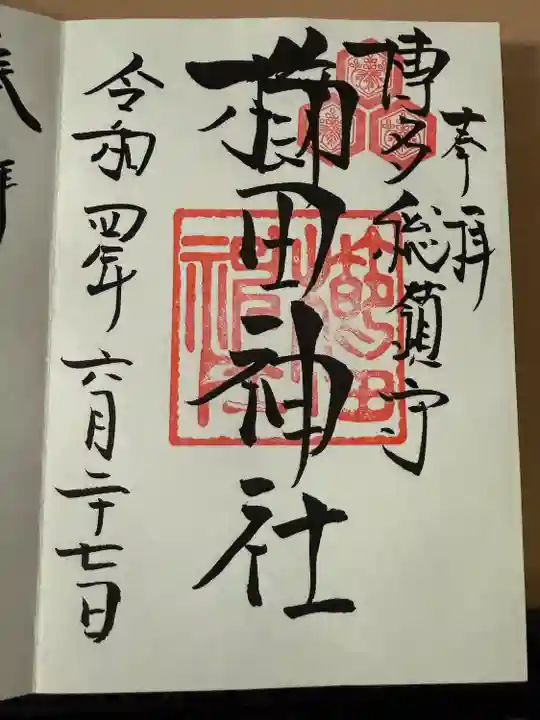 奉拝
博多総鎮守
櫛田神社
令和四年六月二十七日
櫛田
神社
拝